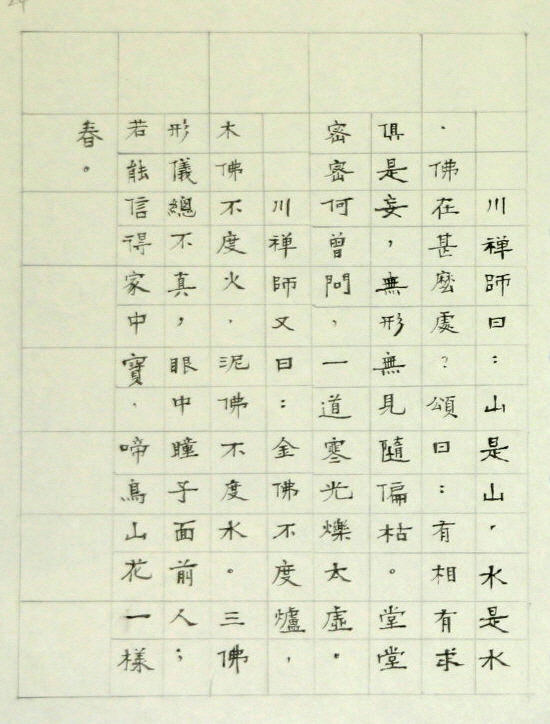 川禅師曰：山是山，水是水
，佛在甚麼處？頌曰：有相有求
俱是妄，無形無見隨偏枯。堂堂
密密何曾問，一道寒光爍太虛。
川禅師又曰：金佛不度爐，
木佛不度火，泥佛不度水。三佛
形儀總不真，眼中瞳子面前人；
若能信得家中寶，啼鳥山花一樣
春。